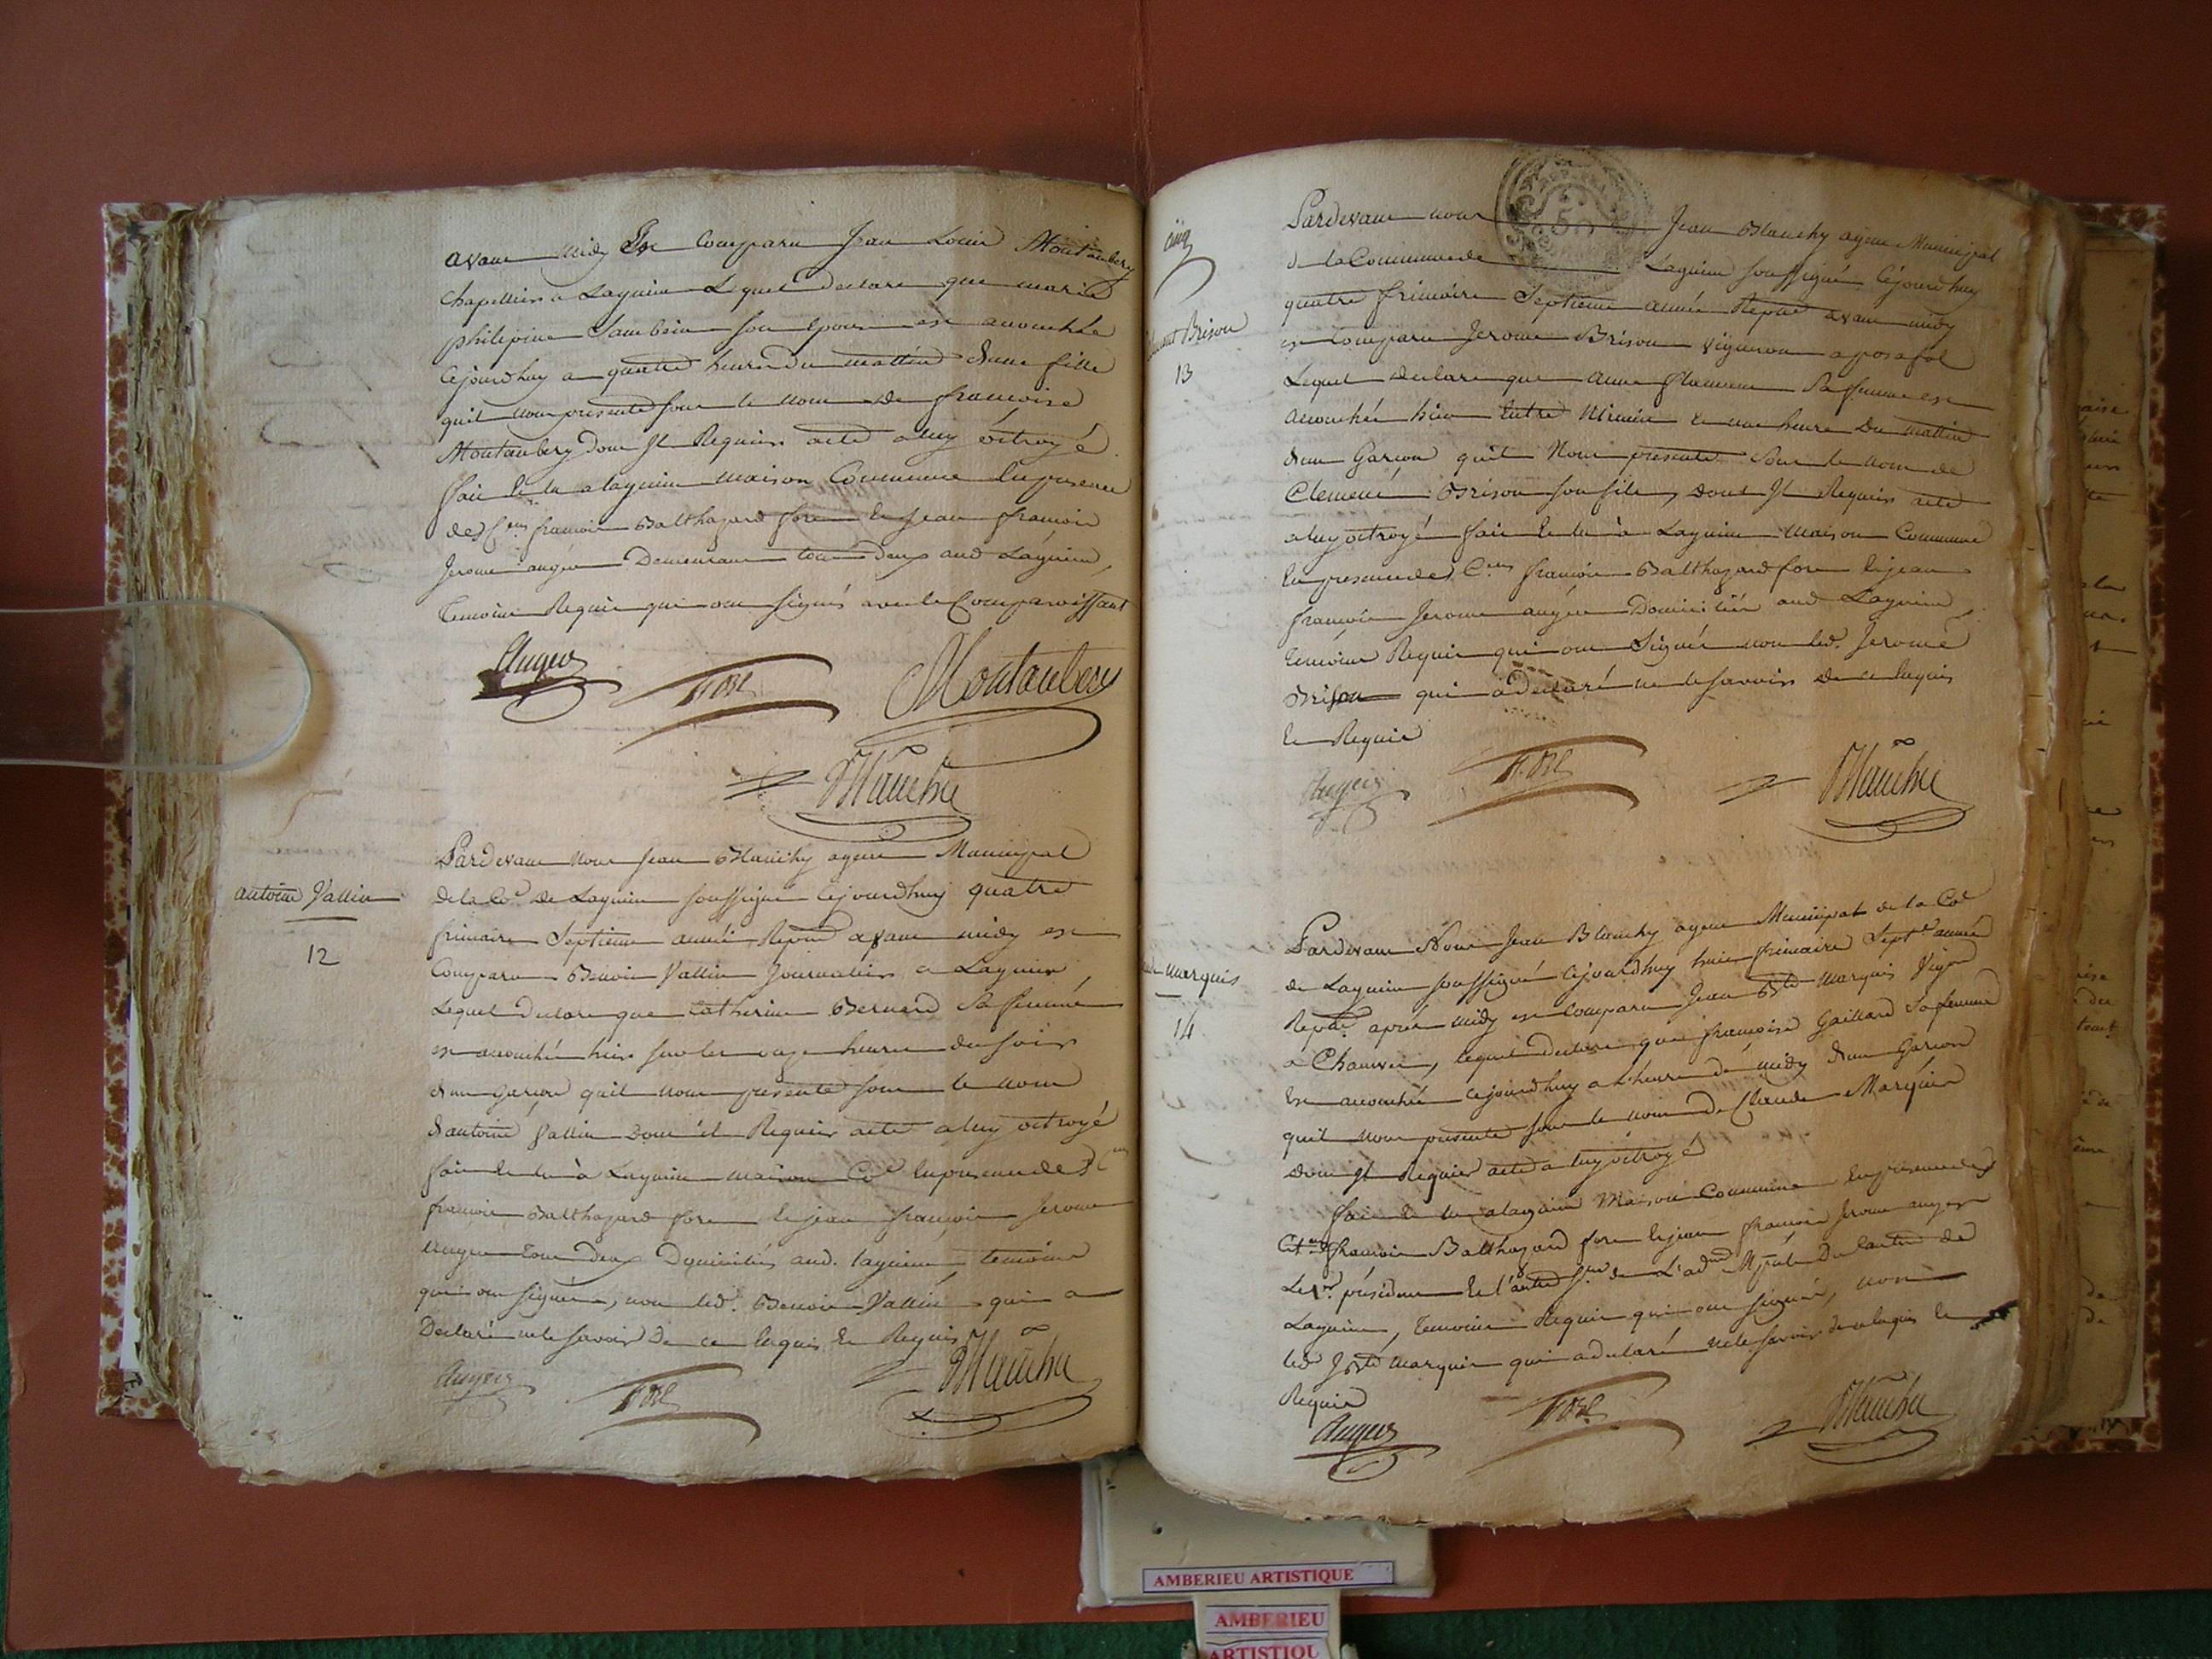 avant midy Est Comparu Jean Louis Montaubery
Chapellier a Lagnieu Lequel declare que marie
philipine Jambein son Epouse est accouchée
Cejourdhuy a quatre heures du mattin dune fille
quil nous presente sous le nom de francoise
Montaubery dont Il Requiers acte a luy octroyé
fait et lu a lagnieu maison Commune En presence
des Cens francois Balthazard fore et Jean francois
Jerome auger Demeurant tous deux aud Lagnieu,
temoins Requis qui ont signés avec le Comparoissant
Auger fore Montaubery
Blanchy
Pardevant nous Jean Blanchy agent Municipal
antoine Vallin
de la Co.e de Lagnieu soussigné Cejourdhuy quatre
12
frimaire Septieme année Repne avant midy est
Comparu Benoit Vallin Journalier a Lagnieu
Lequel declare que Catherine Bernard sa femme
est accouchée hier sur les onze heures du soir
dun garcon quil nous presente sous le nom
dantoine Vallin dont il Requiers acte a luy octroyé
fait et lu à Lagnieu maison Coe En presence des Cens
francois Balthazard fore et jean francois Jerome
Auger tous deux Domiciliés aud. lagnieu, temoins
qui ont signés, non led. Benoit Vallin qui a
Declaré ne le savoir De ce Enquis et Requis
Auger fore Blanchy
cinq
Pardevant nous Jean Blanchy agent Municipal
de la Commune de Lagnieu soussigné Cejourdhuy
quatre frimaire Septieme année Repne avant midy
Brison
est Comparu Jerome Brison vigneron a posafol
13
Lequel declare que anne sa femme est
accouchée hier Entre Minuit et une heure Du mattin
dun Garcon quil Nous presente Sous le nom de
Clement Brison son fils, dont Il Requiers acte
a luy octroyé fait et lu à Lagnieu Maison Commune
En presence des Cens francois Balthazard fore et jean
francois Jerome auger Domiciliés aud Lagnieu,
temoins Requis qui ont Signés non led. Jerome
Brison qui a declaré ne le savoir De ce Enquis
et Requis
Auger fore Blanchy
Pardevant Nous Jean Blanchy agent Municipal de la Coe
marquis
de Lagnieu soussigné Cejourdhuy huit frimaire Septe année
14
Repne aprés midy est Comparu Jean Bte Marquis Vigon
a Chauvei, lequel declare que francoise Gaillard Sa femme
Est accouchée cejourdhuy a l'heure de midy dun Garcon
quil nous presente sous le nom de Claude Marquis
Dont Il Requiers acte a luy octroyé
fait et lu a lagnieu Maison Commune En presence des
Citens francois Balthazard fore et jean francois Jerome auger
Le 1er président Et l'autre de L'adon Mpale Du Canton de
Lagnieu, temoins Requis qui ont signés, non
led J Bte Marquis qui a declaré ne le savoir de ce Enquis et
Requis
Auger fore Blanchy
AMBERIEU ARTISTIQUE
AMBERIEU
ARTISTIQU